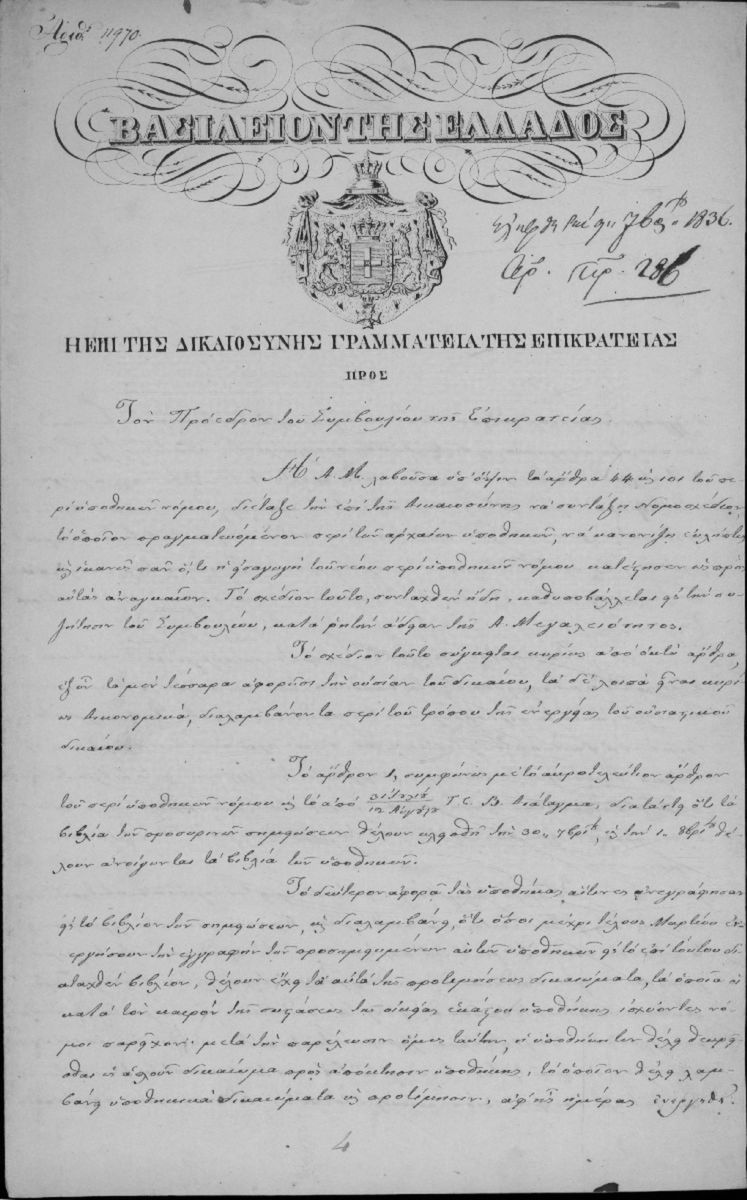 Ἀριθ. 11970.
ΒΑΣΙΛΕΙΟΝ ΤΗΣ ΕΛΛΑΔΟΣ
7βρίου 1836.
Ἀρ. Πρ. 286
Η ΕΠΙ ΤΗΣ ΔΙΚΑΙΟΣΥΝΗΣ ΓΡΑΜΜΑΤΕΙΑ ΤΗΣ ΕΠΙΚΡΑΤΕΙΑΣ
ΠΡΟΣ
Τὸν Πρόεδρον τοῦ Συμβουλίου τῆς Ἐπικρατείας.
Ἡ Α. Μ. λαβοῦσα ὑπ' ὄψιν τὰ ἄρθρα 44 καὶ 101 τοῦ πε-
ρὶ ὑποθηκῶν νόμου, διέταξε τὴν ἐπὶ τῆς Δικαιοσύνης νὰ συντάξῃ Νομοσχέδιον,
τὸ ὁποῖον πραγματευόμενον περὶ τῶν ἀρχαίων ὑποθηκῶν, νὰ κανονίζῃ
καὶ ἱκανῶς πᾶν ὅ,τι ἡ εἰσαγωγὴ τοῦ νέου περὶ ὑποθηκῶν νόμου κατέστησεν ὡς πρὸς
αὐτὰς ἀναγκαῖον. Τὸ σχέδιον τοῦτο, συνταχθὲν ἤδη, καθυποβάλλεται εἰς τὴν συ-
ζήτησιν τοῦ Συμβουλίου, κατὰ ῥητὴν ἄδειαν τῆς Α. Μεγαλειότητος.
Τὸ σχέδιον τοῦτο σύγκειται κυρίως ἀπὸ ὀκτὼ ἄρθρα,
ἐξ ὧν τὰ μὲν τέσσαρα ἀφορῶσι τὴν οὐσίαν τοῦ δικαίου, τὰ δὲ λοιπὰ εἶναι κυρί-
ως Δικονομικά, διαλαμβάνοντα περὶ τοῦ τρόπου τῆς ἐνεργείας τοῦ οὐσιαστικοῦ
δικαίου.
Τὸ ἄρθρον 1, συμφώνως μὲ τὸ ἀκροτελεύτιον ἄρθρον
τοῦ περὶ ὑποθηκῶν νόμου καὶ τὸ ἀπὸ 31 Ἰουλίου / 12 Αὐγούστου Τ. Ε. Β. Διάταγμα, διατάττει ὅτι τὰ
βιβλία τῶν προσωρινῶν σημειώσεων θέλουν κλεισθῆ τὴν 30 7βρίου, καὶ τὴν 1 8βρίου θέ-
λουν ἀνοίγονται τὰ βιβλία τῶν ὑποθηκῶν.
Τὸ δεύτερον ἀφορᾷ τὰς ὑποθήκας αἵτινες ἀνεγράφησαν
εἰς τὸ βιβλίον τῶν σημειώσεων, καὶ διαλαμβάνει, ὅτι ὅσοι μέχρι τέλους Μαρτίου ἐν-
εργήσουν τὴν ἐγγραφὴν τῶν προσημειωμένων αὐτῶν ὑποθηκῶν εἰς τὸ ἐπὶ τούτου δι-
αταχθὲν βιβλίον, θέλουν ἔχει τὰ αὐτὰ τῆς προτιμήσεως δικαιώματα, τὰ ὁποῖα οἱ
κατὰ τὸν καιρὸν τῆς συστάσεως τῆς οἰκείας ἑκάστου ὑποθήκης ἰσχύοντες νό-
μοι παρεῖχον· μετὰ τὴν παρέλευσιν ὅμως ταύτην, ἡ ὑποθήκη των θέλει θεωρεῖ-
σθαι ὡς ἁπλοῦν δικαίωμα πρὸς ἀπόκτησιν ὑποθήκης, τὸ ὁποῖον θέλει λαμ-
βάνει ὑποθηκικὰ δικαιώματα καὶ προτίμησιν, ἀφ' ἧς ἡμέρας ἐνεργηθῇ
4